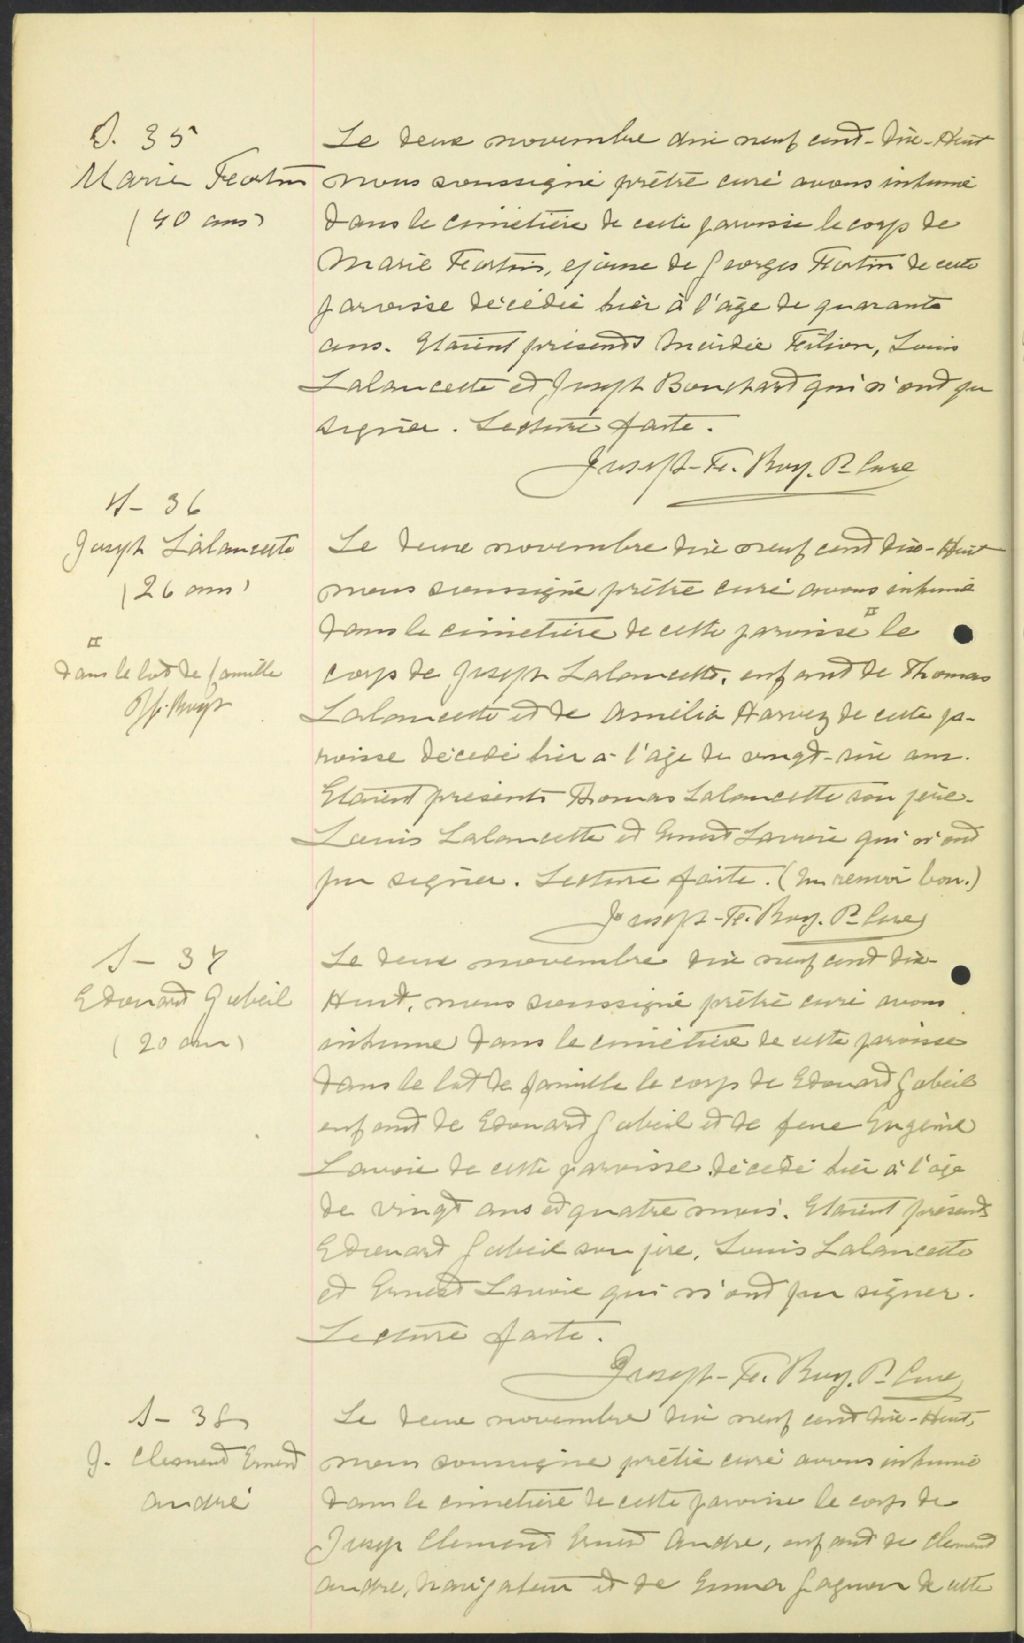 S. 35
Marie Fortin
(40 ans)
Le deux novembre dix neuf cent-dix-Huit
nous soussigné prêtre curé avons inhumé
dans le cimetière de cette paroisse le corps de
Marie Fortin, épouse de Georges Fortin de cette
paroisse décédée hier à l'âge de quarante
ans. Etaient présents Filion, Louis
Lalancette et Joseph Bouchard qui n'ont pu
signer. Lecture faite.
Joseph-Ff. Roy. Ptre Curé
S- 36
Joseph Lalancette
(26 ans)
¤
dans le lot de famille
Le deux novembre dix neuf cent dix-Huit
nous soussigné prêtre curé avons inhumé
dans le cimetière de cette paroisse ¤ le
corps de Joseph Lalancette, enfant de Thomas
Lalancette et de Amélia Harvey de cette pa-
roisse décédé hier à l'âge de vingt-six ans.
Etaient présents Thomas Lalancette son père.
Louis Lalancette et Ernest Lavoie qui n'ont
pu signer. Lecture faite. (Un renvoi bon.)
Joseph-Ff. Roy. Ptre Curé
S- 37
Edouard Gobeil
(20 ans)
Le deux novembre dix neuf cent dix-
Huit, nous soussigné prêtre curé avons
inhumé dans le cimetière de cette paroisse
dans le lot de famille le corps de Edouard Gobeil
enfant de Edouard Gobeil et de feue Eugénie
Lavoie de cette paroisse décédé hier à l'âge
de vingt ans et quatre mois. Etaient présents
Edouard Gobeil son père, Louis Lalancette
et Ernest Lavoie qui n'ont pu signer.
Lecture faite.
Joseph-Ff. Roy. Ptre Curé
S- 38
J. Clement Ernest
André
Le deux novembre dix neuf cent dix-Huit,
nous soussigné prêtre curé avons inhumé
dans le cimetière de cette paroisse le corps de
Joseph Clement Ernest André, enfant de Clement
André, navigateur et de Emma Gagnon de cette